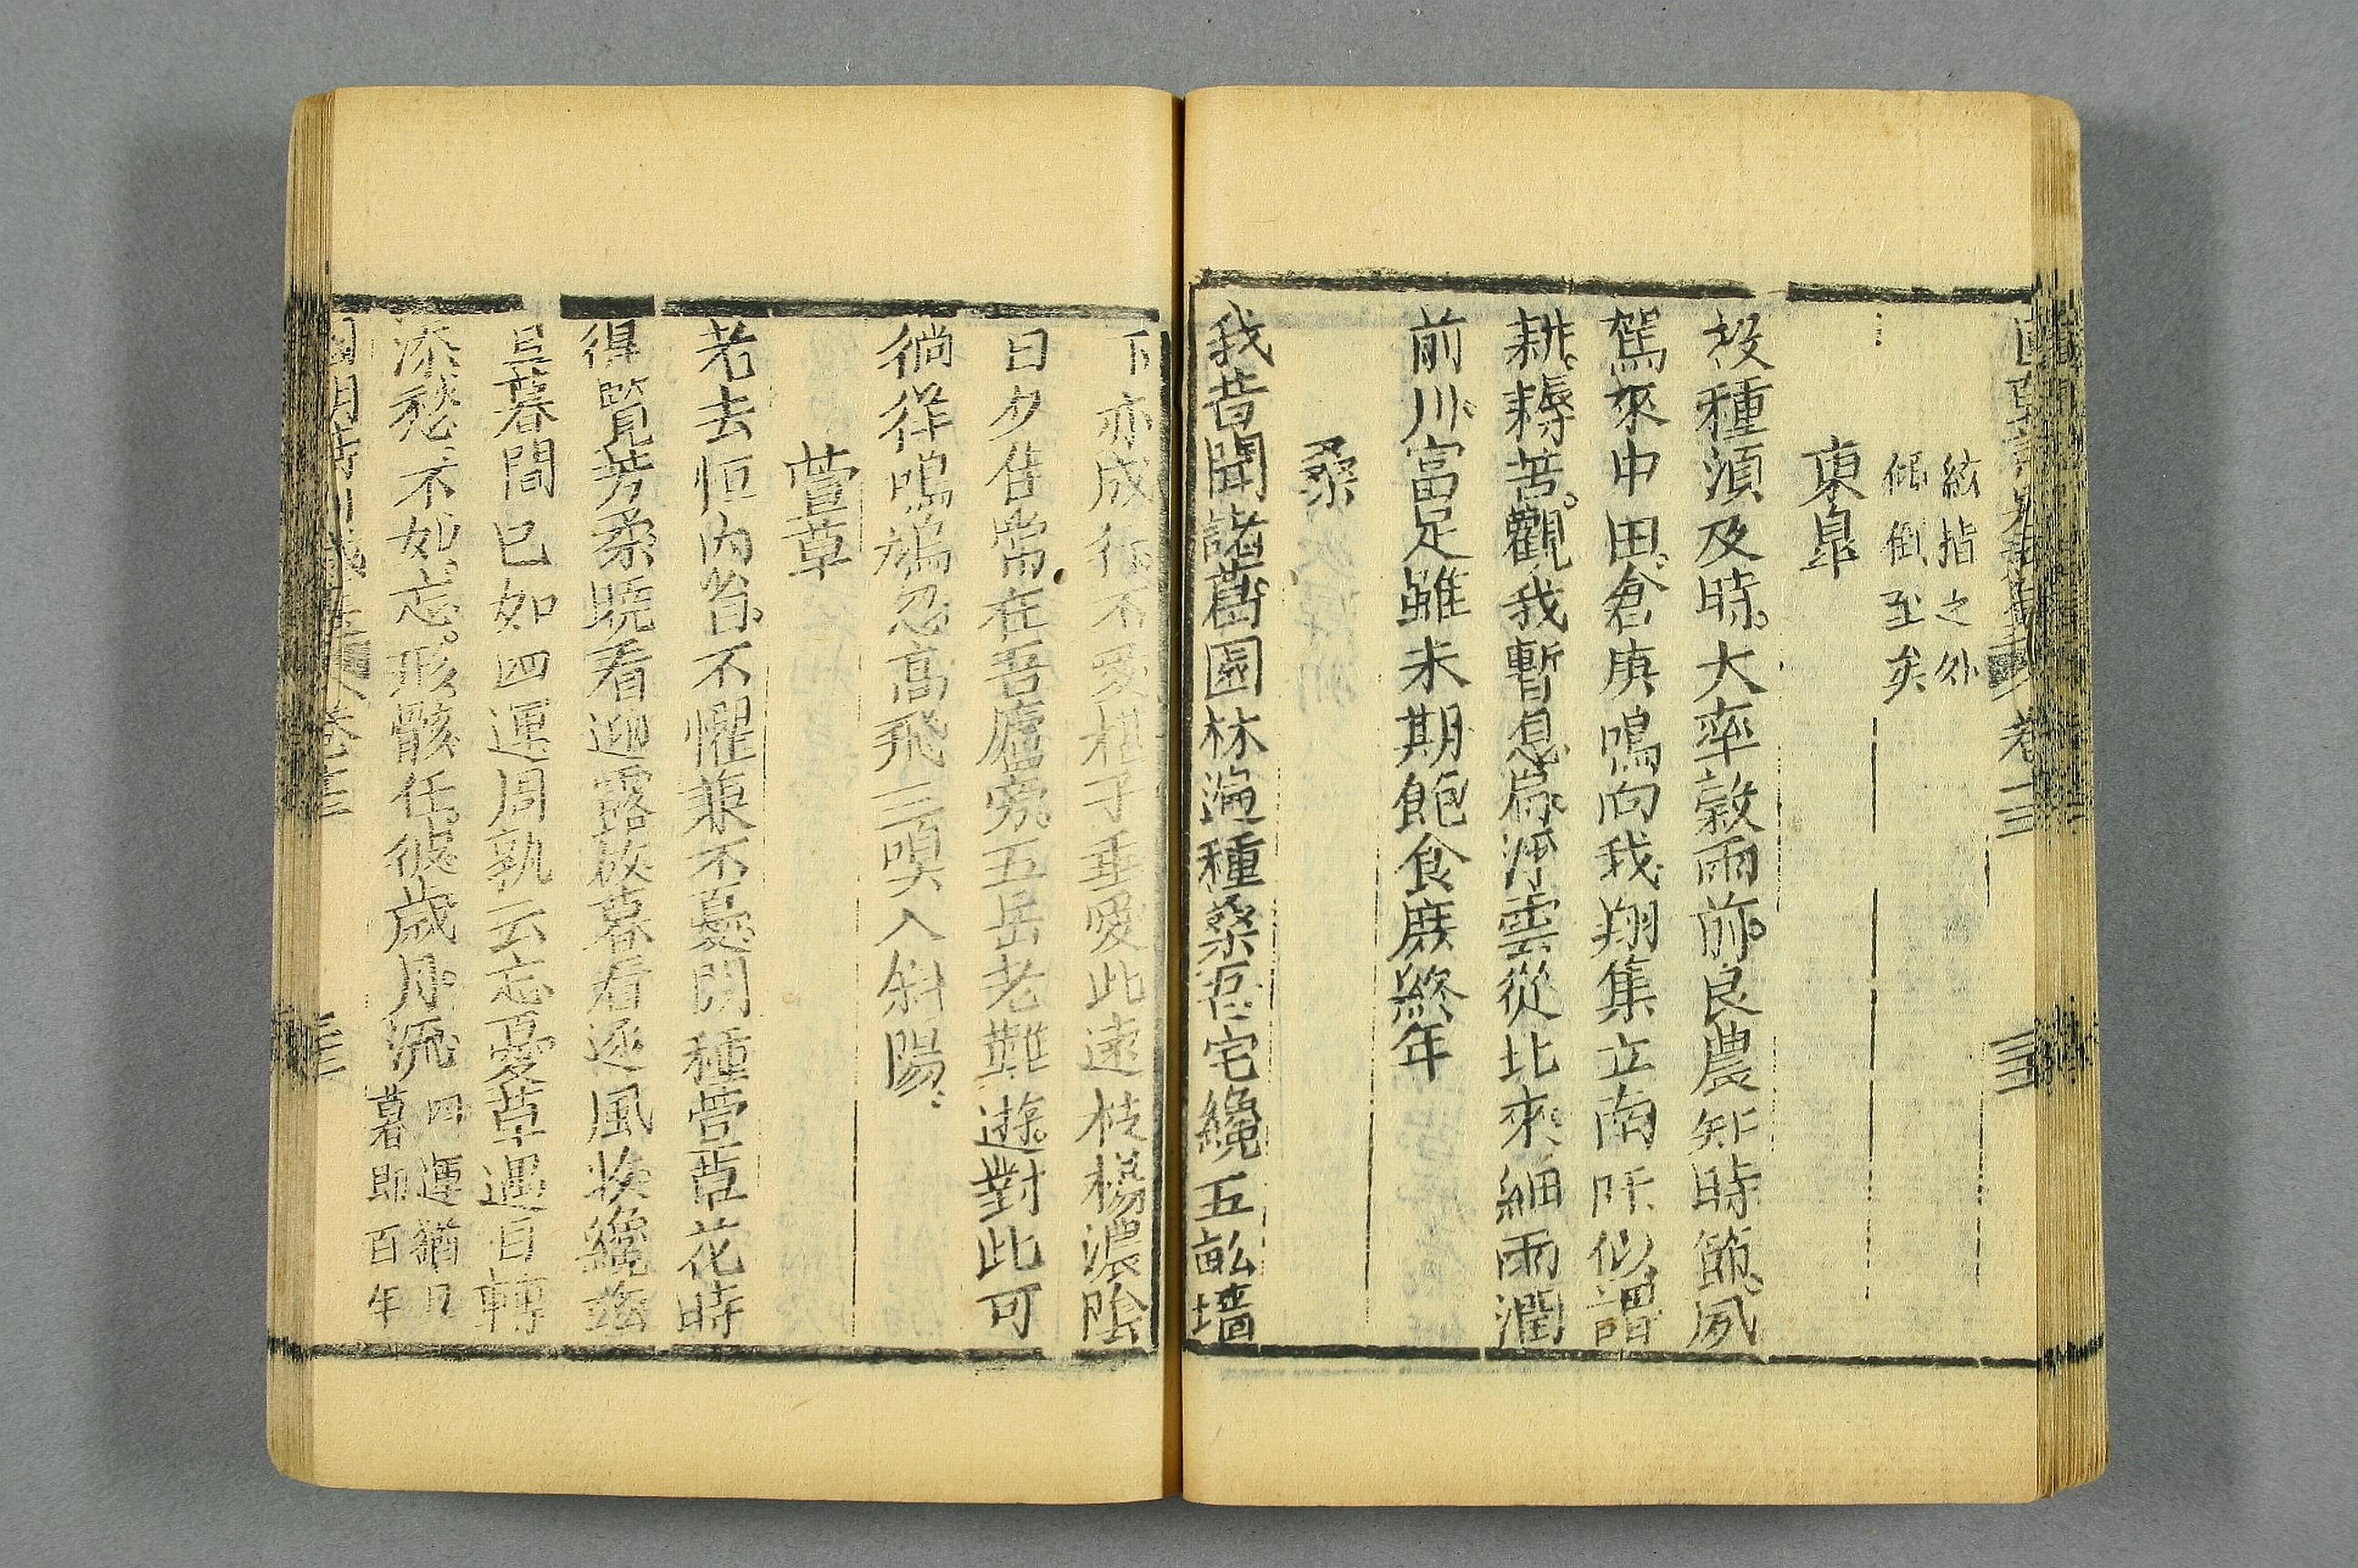 卷三
絃指之外
傾倒至矣
東臯
投種須及時大率穀雨前良農知時節夙
駕來中田倉庚鳴向我翔集立南阡似謂
耕耨苦觀我暫息肩浮雲從北來細雨潤
前川富足雖未期飽食庶終年
桑
我昔聞諸葛園林遍種桑吾宅纔五畝墻
下亦成行不愛椹子垂愛此遠枝楊濃陰
日夕佳常在吾廬旁五岳老難遊對此可
徜徉鳴鳩忽高飛三嗅入斜陽
萱草
老去恒內省不懼兼不憂閒種萱草花時
得覽芳柔曉看迎露放暮看逐風收纔茲
旦暮間已如四運周孰云忘憂草遇目轉
添愁不如忘形骸任彼歲月流
四運猶旦
暮即百年
卷三